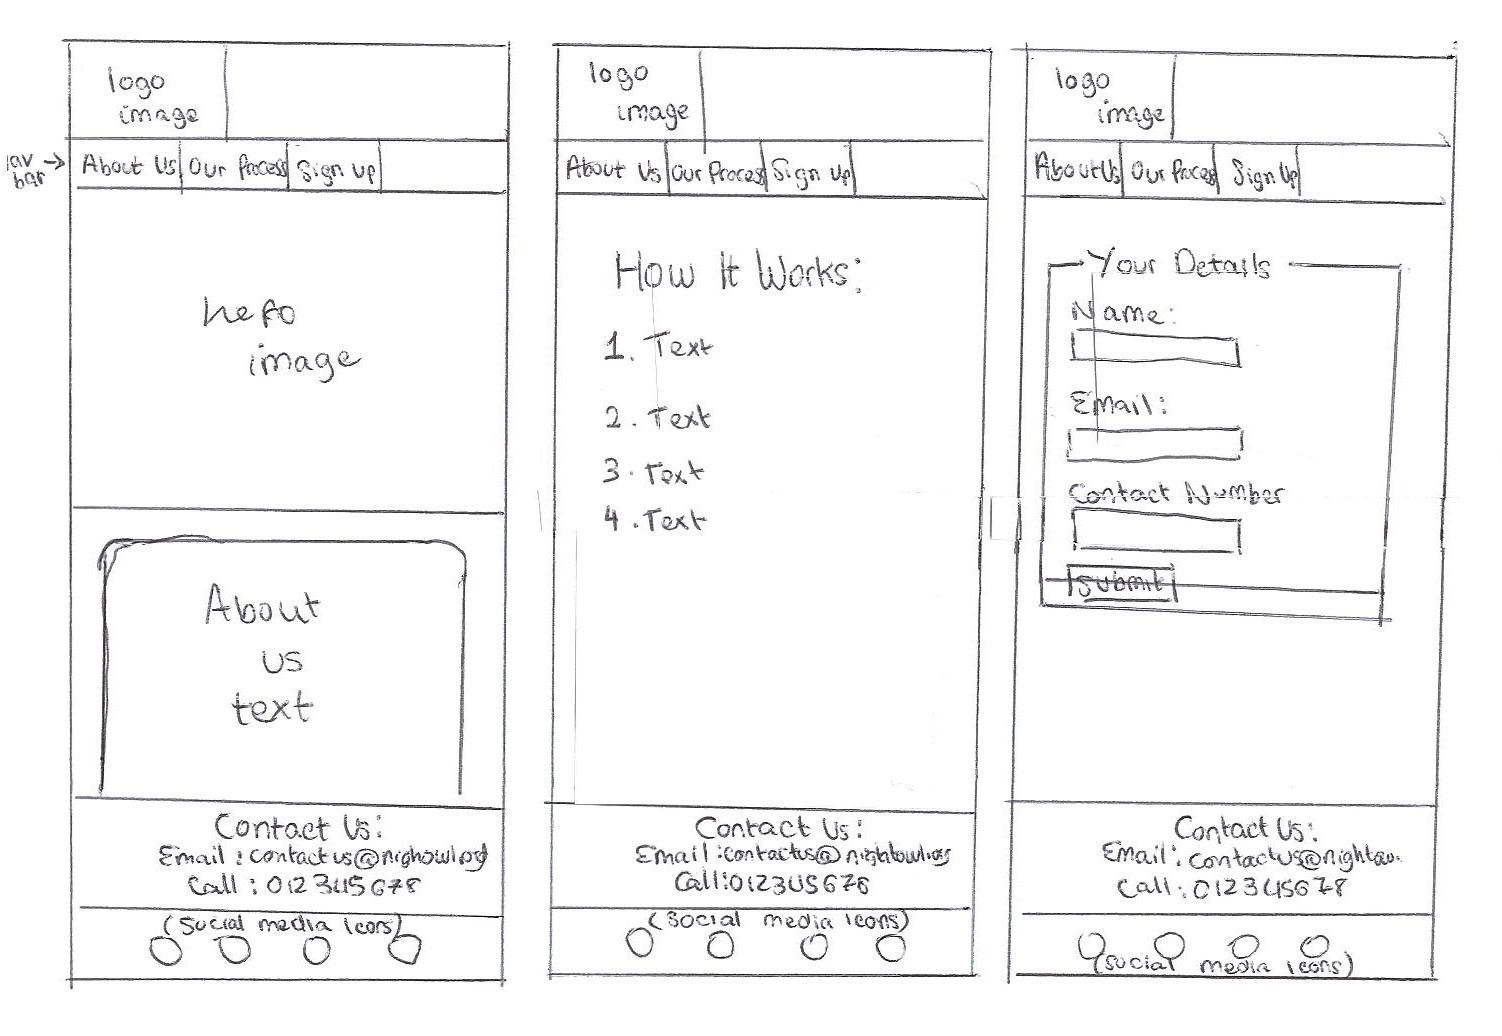 logo
image
nav
bar
About Us Our Process Sign Up
hero
image
About
us
text
Contact Us:
Email : contactus@nighowl.org
Call : 012345678
(Social media Icons)
logo
image
About Us Our Process Sign Up
How It Works:
1. Text
2. Text
3. Text
4. Text
Contact Us:
Email : contactus@nightowl.org
Call: 012345678
(Social media Icons)
logo
image
About Us Our Process Sign Up
Your Details
Name:
Email:
Contact Number
Submit
Contact Us:
Email: contactus@nightow.
Call: 012345678
(social media icons)